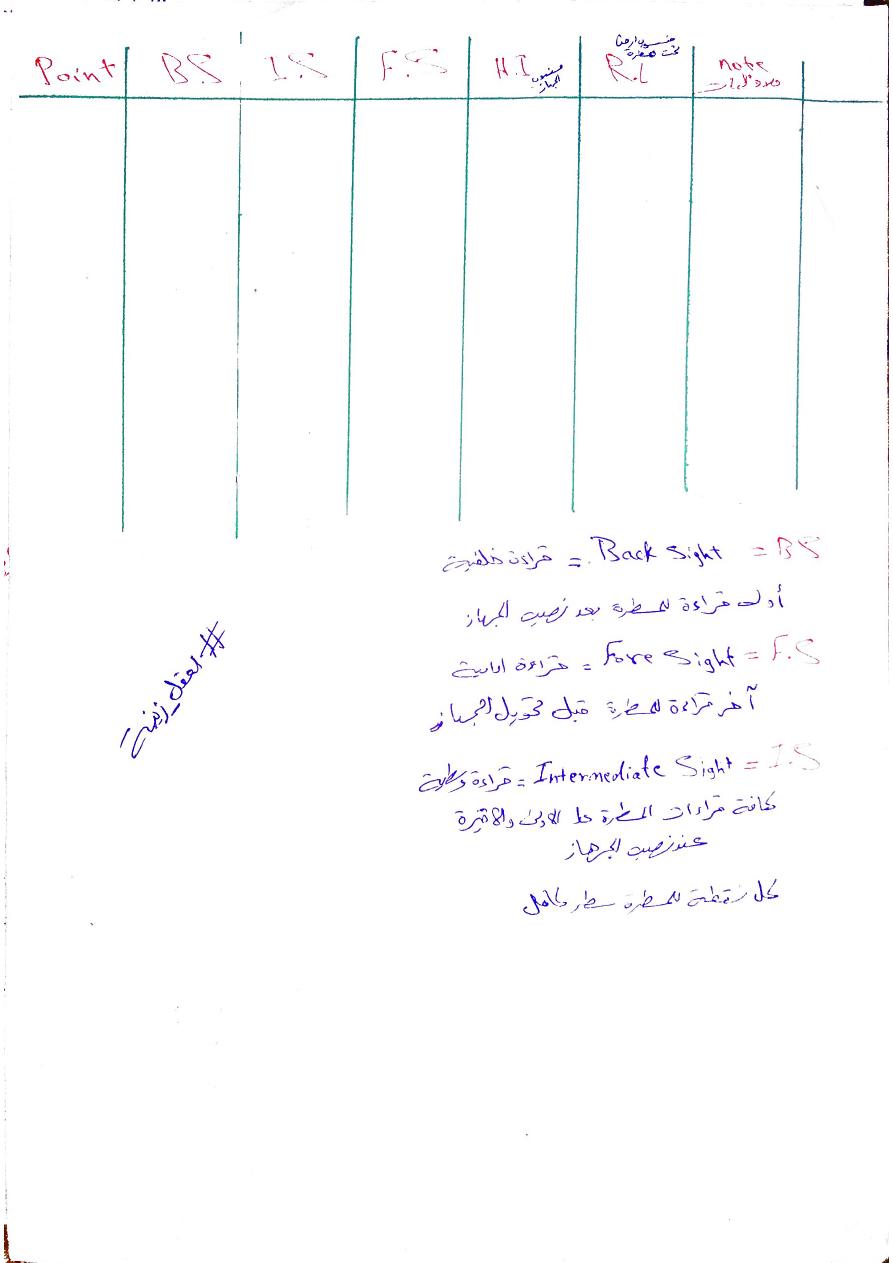 Point B.S I.S F.S H.I منسوب الجهاز R.L منسوب ارض تحت المسطرة note ملاحظات
B.S = Back Sight = قراءة خلفية
أول قراءة للمسطرة بعد نصب الجهاز
F.S = Fore Sight = قراءة امامية
آخر قراءة للمسطرة قبل تحويل الجهاز
I.S = Intermediate Sight = قراءة وسطية
كافة قراءات المسطرة عدا الاولى والاخيرة
عند نصب الجهاز
كل نقطة للمسطرة سطر كامل
#العقل_زينة